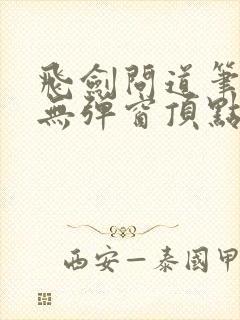 飛劍問道筆
無彈窗頂點
西安—泰國甲